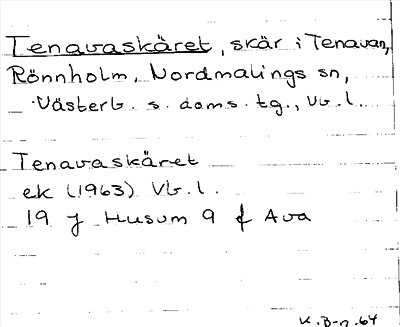 Tenavaskäret, skär i Tenavan,
Rönnholm, Nordmalings sn,
Västerb. s. doms. tg., Vb. l.
Tenavaskäret
ek (1963) Vb. l.
19 J Husum 9 f Ava
K. B-n. 64